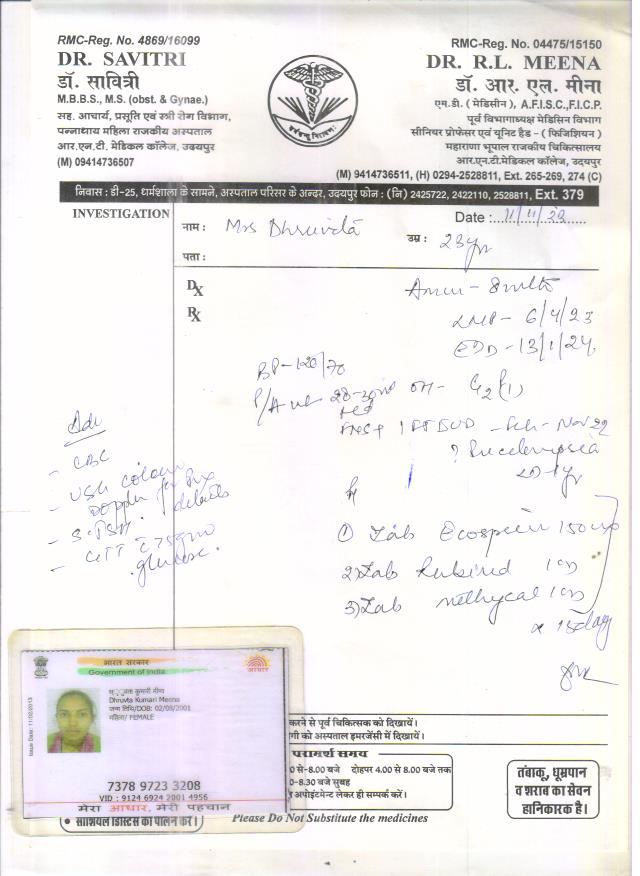 RMC-Reg. No. 4869/16099
DR. SAVITRI
डॉ. सावित्री
M.B.B.S., M.S. (obst. & Gynae.)
सह. आचार्य, प्रसूति एवं स्त्री रोग विभाग,
पन्नाधाय महिला राजकीय अस्पताल
आर.एन.टी. मेडिकल कॉलेज, उदयपुर
(M) 09414736507
RMC-Reg. No. 04475/15150
DR. R.L. MEENA
डॉ. आर. एल. मीना
एम.डी. ( मेडिसीन ), A.F.I.S.C.,F.I.C.P.
पूर्व विभागाध्यक्ष मेडिसिन विभाग
सीनियर प्रोफेसर एवं यूनिट हैड - ( फिजिशियन )
महाराणा भूपाल राजकीय चिकित्सालय
आर.एन.टी.मेडिकल कॉलेज, उदयपुर
(M) 9414736511, (H) 0294-2528811, Ext. 265-269, 274 (C)
निवास : डी-25, धर्मशाला के सामने, अस्पताल परिसर के अन्दर, उदयपुर फोन : (नि) 2425722, 2422110, 2528811, Ext. 379
INVESTIGATION
नाम : Mrs Dhruvta
Date : 11/11/23
उम्र : 23yr
पता :
DX
RX
LMP - 6/4/23
EDD - 13/1/24
BP - 120/70
P/A
Adv
- CBC
- USG colour
Doppler
- S. TSH
- GTT c 75gm
glucose.
1) Tab Ecosprin 150mg
2) Tab
3) Tab
x 15 day
भारत सरकार
Government of India
आधार
Issue Date: 11/02/2013
कुमारी मीना
Dhruvta Kumari Meena
जन्म तिथि/DOB: 02/08/2001
महिला/ FEMALE
7378 9723 3208
VID : 9124 6924 2001 4956
मेरा आधार, मेरी पहचान
करने से पूर्व चिकित्सक को दिखायें।
को अस्पताल इमरजेंसी में दिखायें।
परामर्श समय
0 से-8.00 बजे दोहपर 4.00 से 8.00 बजे तक
0-8.30 बजे सुबह
अपोइंटमेन्ट लेकर ही सम्पर्क करें।
तंबाकू, धूम्रपान
व शराब का सेवन
हानिकारक है।
• सोशियल डिस्टेंस का पालन करें।
Please Do Not Substitute the medicines